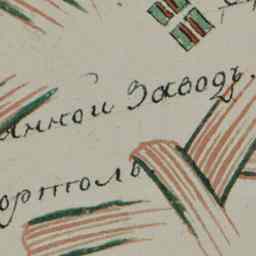 анной Заводъ.
ортоль